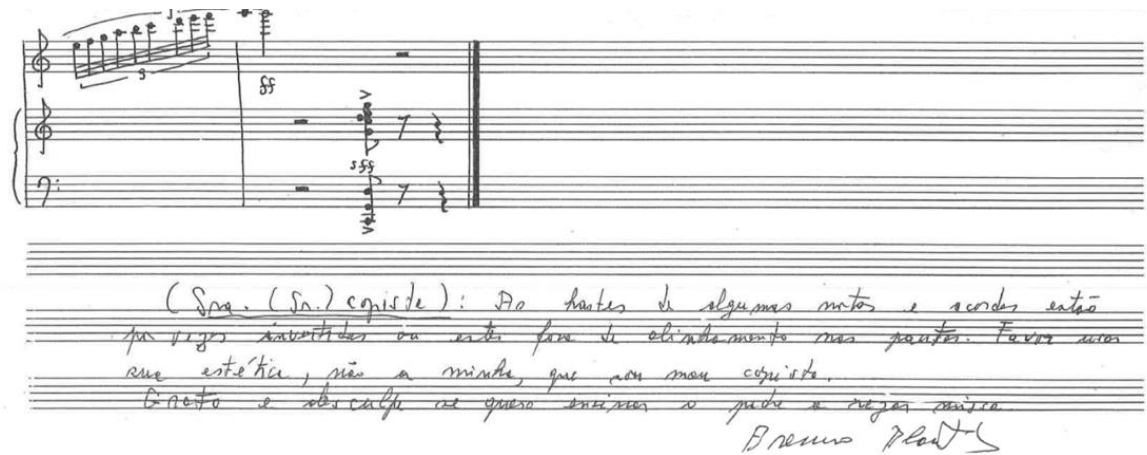 3
9
ff
sff
(Sra. (Sr.) copista): As hastes de algumas notas e acordes estão
por vezes invertidas ou estão fora de alinhamento nas pautas. Favor usar
sua estética, não a minha, que sou mau copista.
Grato e desculpe se quero ensinar o padre a rezar missa